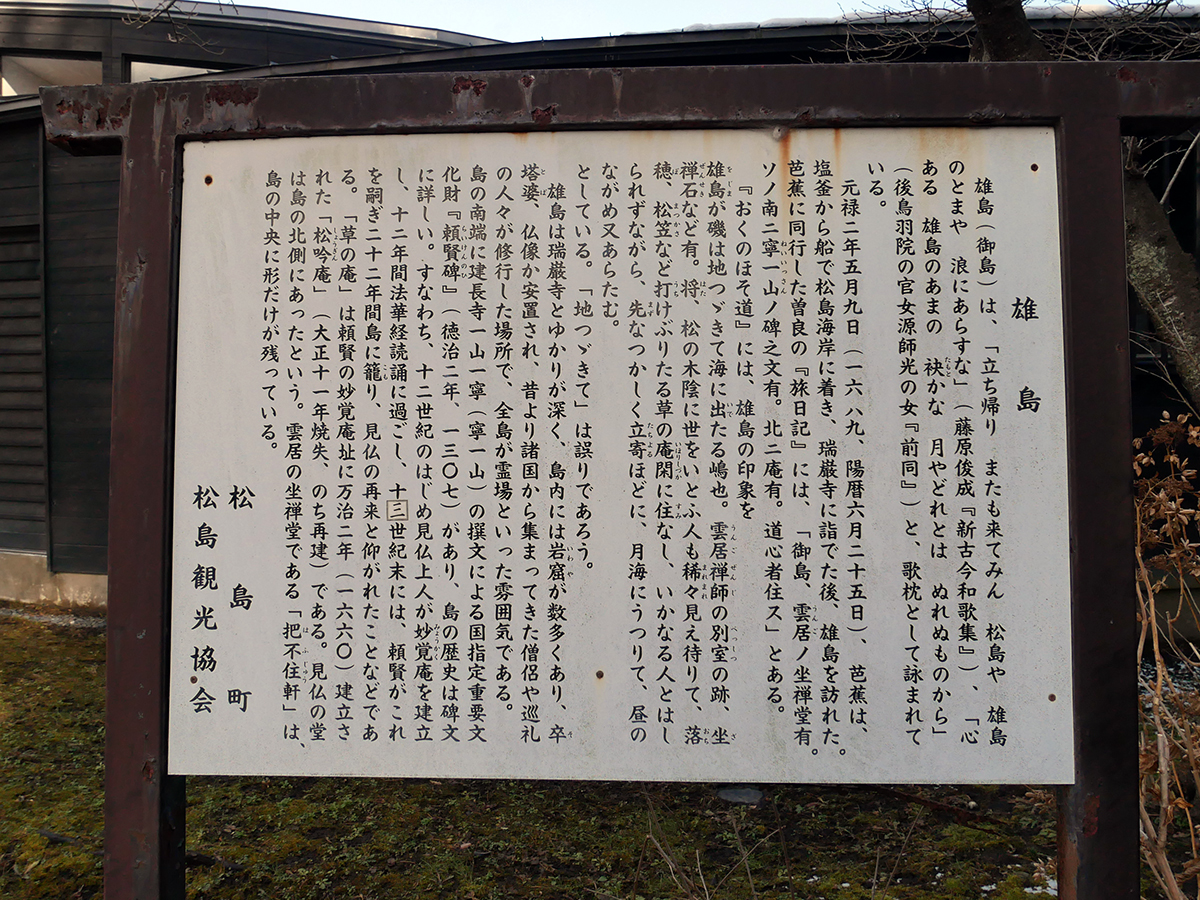 雄島
雄島(御島)は、「立ち帰り またも来てみん 松島や 雄島
のとまや 浪にあらすな」(藤原俊成『新古今和歌集』)、「心
ある 雄島のあまの 袂かな 月やどれとは ぬれぬものから」
(後鳥羽院の官女源師光の女『前同』)と、歌枕として詠まれて
いる。
元禄二年五月九日(一六八九、陽暦六月二十五日)、芭蕉は、
塩釜から船で松島海岸に着き、瑞巌寺に詣でた後、雄島を訪れた。
芭蕉に同行した曽良の『旅日記』には、「御島、雲居ノ坐禅堂有。
ソノ南ニ寧一山ノ碑之文有。北ニ庵有。道心者住ス」とある。
『おくのほそ道』には、雄島の印象を
雄島が磯は地つゞきて海に出たる嶋也。雲居禅師の別室の跡、坐
禅石など有。将、松の木陰に世をいとふ人も稀々見え待りて、落
穂、松笠など打けぶりたる草の庵閑に住なし、いかなる人とはし
られずながら、先なつかしく立寄ほどに、月海にうつりて、昼の
ながめ又あらたむ。
としている。「地つゞきて」は誤りであろう。
雄島は瑞巌寺とゆかりが深く、島内には岩窟が数多くあり、卒
塔婆、仏像か安置され、昔より諸国から集まってきた僧侶や巡礼
の人々が修行した場所で、全島が霊場といった雰囲気である。
島の南端に建長寺一山一寧(寧一山)の撰文による国指定重要文
化財『頼賢碑』(徳治二年、一三〇七)があり、島の歴史は碑文
に詳しい。すなわち、十二世紀のはじめ見仏上人が妙覚庵を建立
し、十二年間法華経読誦に過ごし、十三世紀末には、頼賢がこれ
を嗣ぎ二十二年間島に籠り、見仏の再来と仰がれたことなどであ
る。「草の庵」は頼賢の妙覚庵址に万治二年(一六六〇)建立さ
れた「松吟庵」(大正十一年焼失、のち再建)である。見仏の堂
は島の北側にあったという。雲居の坐禅堂である「把不住軒」は、
島の中央に形だけが残っている。
松島町
松島観光協会